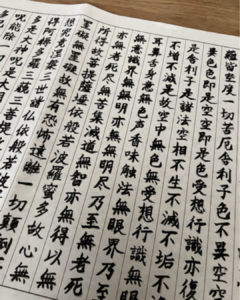 蘊皆空度一切苦厄舎利子色不異空空
異色色即是空空即是色受想行識亦復
是舎利子是諸法空相不生不滅不垢不
不増不減是故空中無色無受想行識無眼
耳鼻舌身意無色声香味触法無眼界乃至
無意識界無無明亦無無明尽乃至無老死
亦無老死尽無苦集滅道無智亦無得以無
所得故菩提薩埵依般若波羅蜜多故心無
罣礙無罣礙故無有恐怖遠離一切顛倒
想究竟涅槃三世諸仏依般若波
得阿耨多羅三藐三菩提
多是大神呪是大
呪能除一